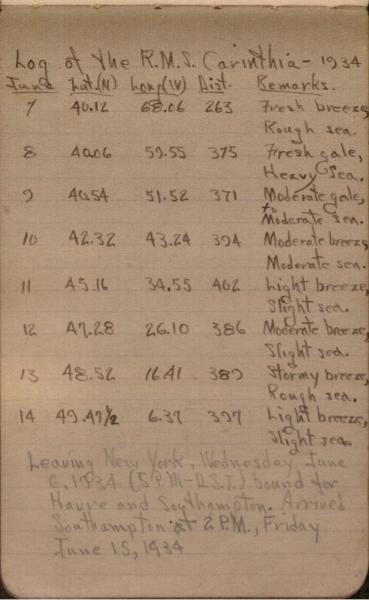 Log of the R.M.S. Carinthia - 1934
June Lat.(N) Long(W) Dist. Remarks.
7 40.12 68.06 263 Fresh breeze,
Rough sea.
8 40.06 59.55 375 Fresh gale,
Heavy Sea.
9 40.54 51.52 371 Moderate gale,
to
Moderate sea.
10 42.32 43.24 394 Moderate breeze,
Moderate sea.
11 45.16 34.55 402 Light breeze,
Slight sea.
12 47.28 26.10 386 Moderate breeze,
Slight sea.
13 48.52 16.41 389 Stormy breeze,
Rough sea.
14 49.47½ 6.37 397 Light breeze,
Slight sea.
Leaving New York, Wednesday, June
6, 1934 (5 P.M-D.S.T.) bound for
Havre and Southampton. Arrived
Southampton at 2 P.M., Friday
June 15, 1934